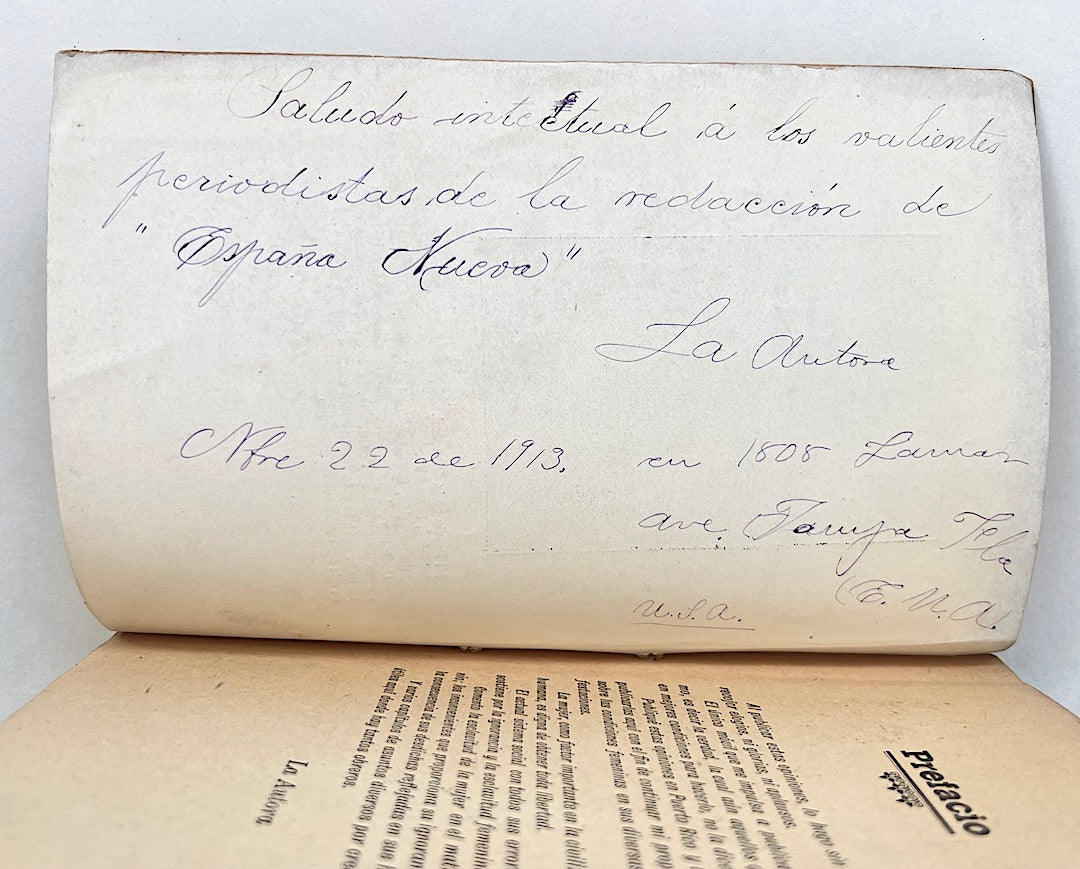 Saludo intectual á los valientes
periodistas de la redacción de
"España Nueva"
La Autora
Nbre 22 de 1913. en 1808 Lamar
ave. Tampa Fla
(E. U. A.
U.S.A.
Prefacio
Al publicar estas opiniones, lo hago sin
recojer elogios, ni glorias, ni aplausos.
El único móvil que me impulsa a
es decir la verdad, la cual, aún aquellos
en mejores condiciones para hacerlo, no la
Publiqué estas opiniones en Puerto Rico y
publicarlas aquí con el fin de continuar mi
sobre las condiciones femeninas en sus diversas
festaciones.
La mujer, como factor importante en la
humana, es digna de obtener toda libertad.
El actual sistema social con todos sus
sostiene por la ignorancia y la esclavitud
la esclavitud de la mujer en el
las inconveniencias que proporciona su
la consecuencia de sus desdichas reflejadas en sus
Y varios capítulos de asuntos diversos por
útiles aquí donde hay tantos obreros.
La Autora.